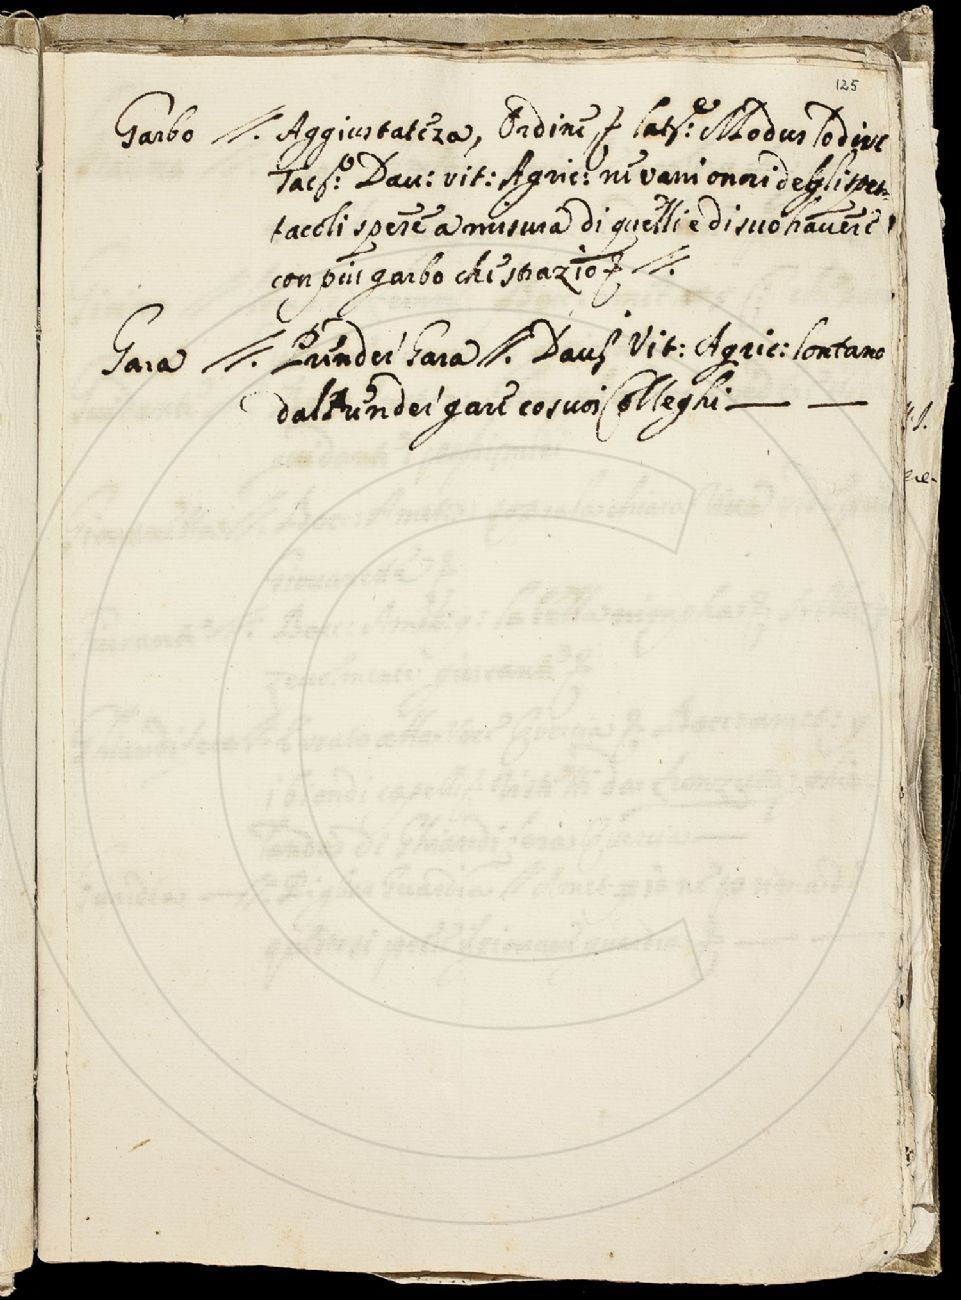 125
Garbo //. Aggiustateza, Ordine, Lat: Modus
Tac: Dav: vit: Agric: ne vani onori degli spet-
tacoli spere a misura di quelli e di suo havere
con più garbo che strazio //.
Gara //. Gara //. Dav Vit: Agric: lontano
gare co suoi Colleghi — —